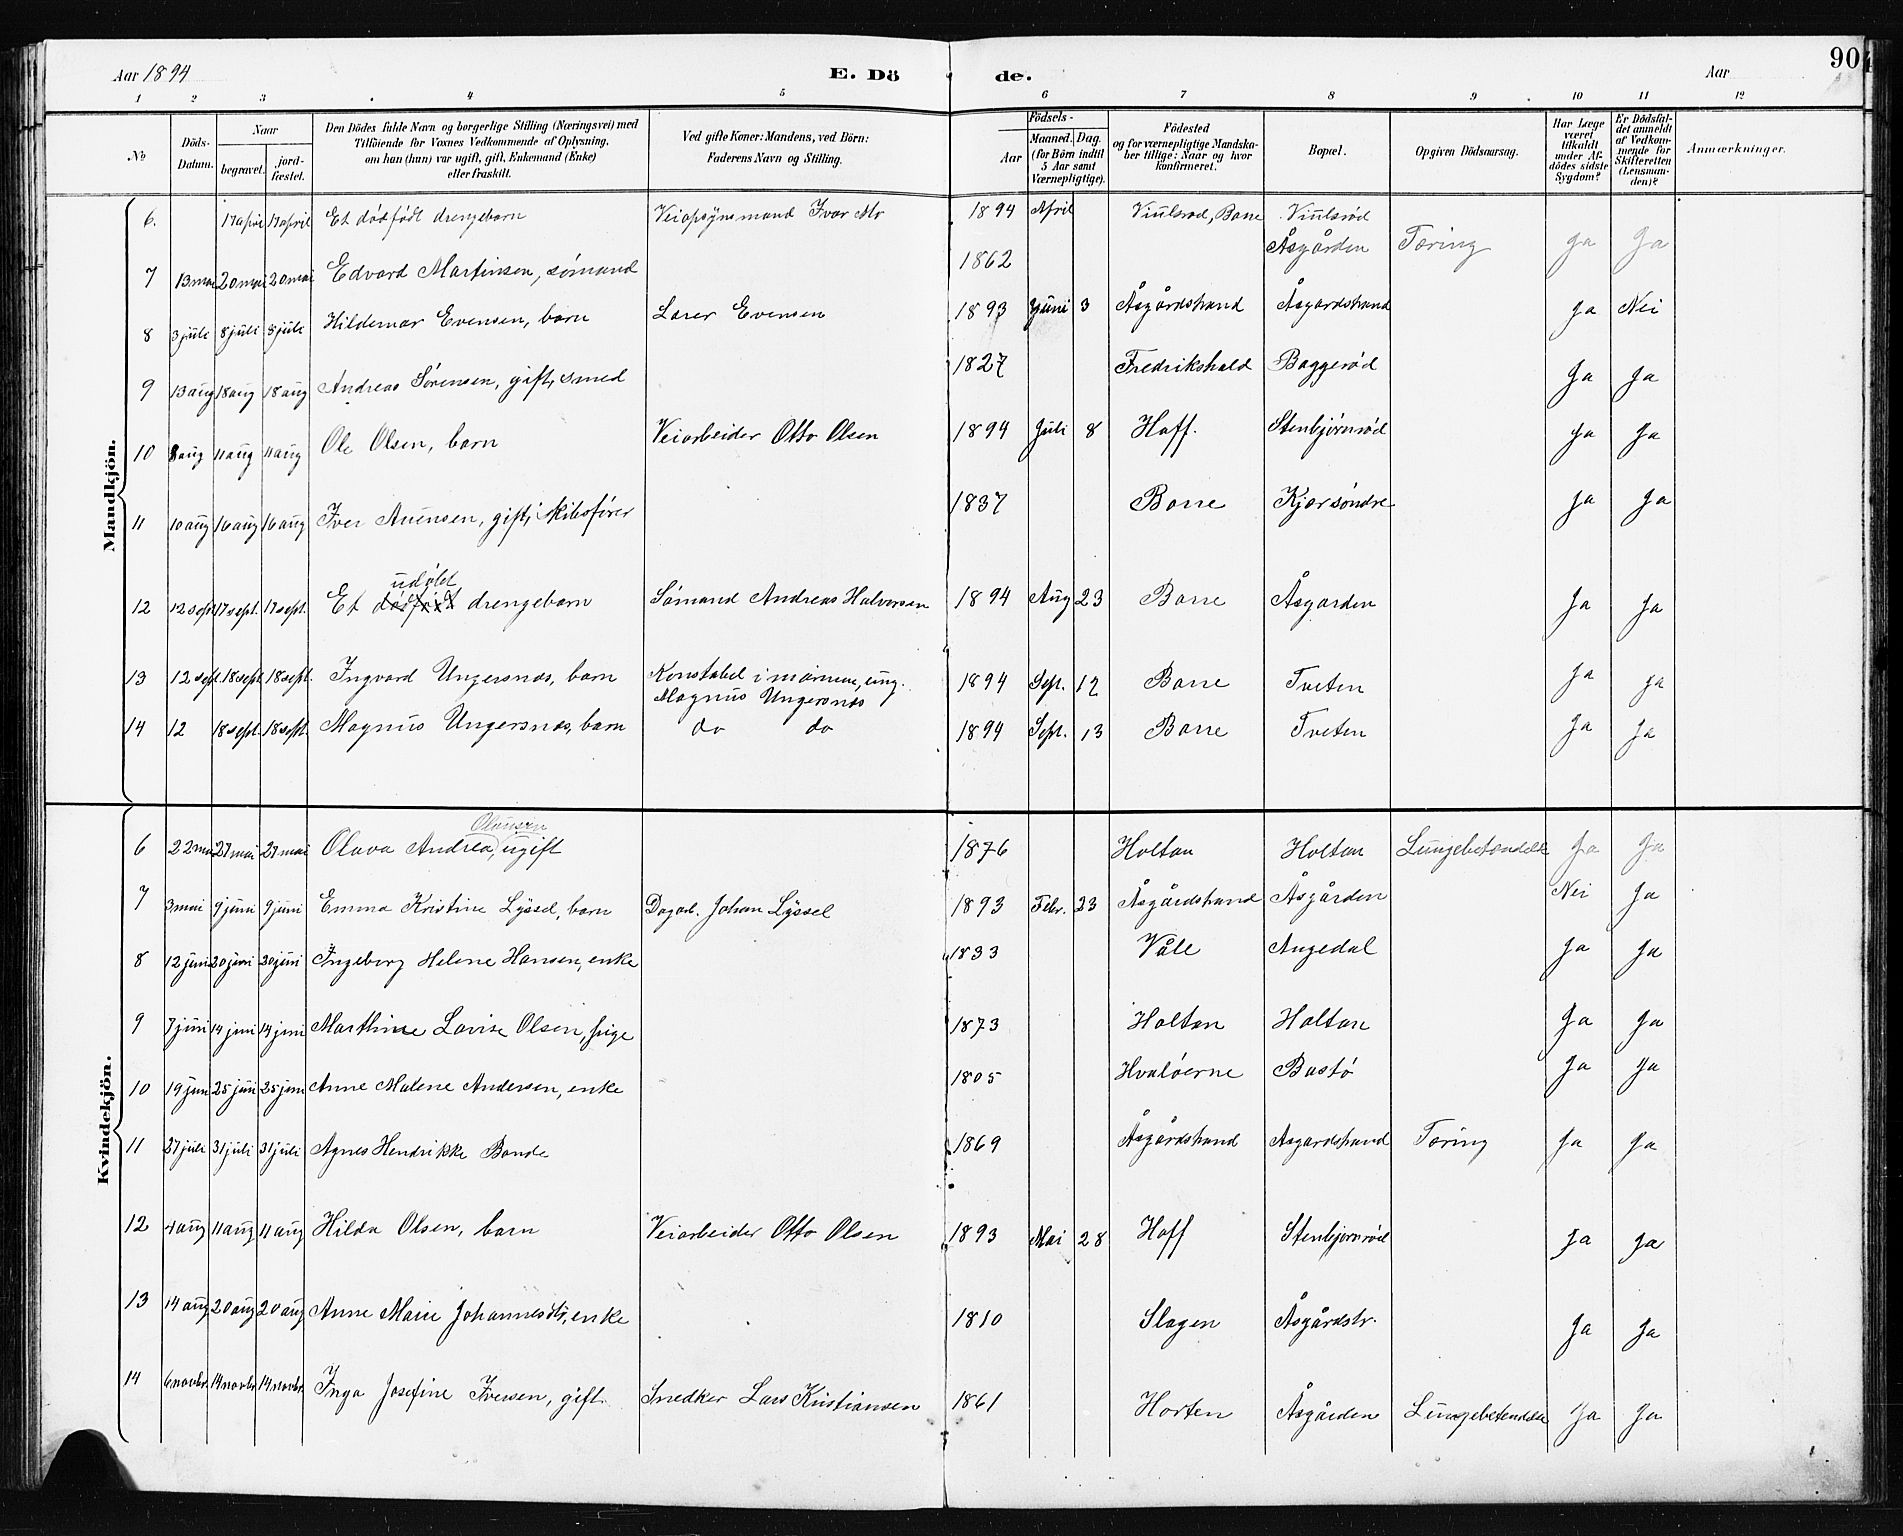 Aar 1894 E. Dö de. Aar 90
1 2 3 4 5 6 7 8 9 10 11 12
No Döds-Datum. Naar begravet. jord-fæstet. Den Dödes fulde Navn og borgerlige Stilling (Næringsvei) med Tilföiende for Voxnes Vedkommende af Oplysning, om han (hun) var ugift, gift, Enkemand (Enke) eller fraskilt. Ved gifte Koner: Mandens, ved Börn: Faderens Navn og Stilling. Födsels- Aar Maaned. Dag. (for Börn indtil 5 Aar samt Værnepligtige). Födested og for værnepligtige Mandskaber tillige: Naar og hvor konfirmeret. Bopæl. Opgiven Dödsaarsag. Har Læge været tilkaldt under Afdödes sidste Sygdom? Er Dödsfaldet anmeldt af Vedkommende for Skifteretten (Lensmanden)? Anmærkninger.
Mandkjön.
6. 17 april 17 april Et dödfödt drengebarn Veiopsynsmand Ivar Mo 1894 April Viulsrød, Borre Viulsrød
7 13 mai 20 mai 20 mai Edvard Martinsen, sømand 1862 Åsgården Tæring Ja Ja
8 3 juli 8 juli 8 juli Hildemar Evensen, barn Lærer Evensen 1893 Juni 3 Åsgårdstrand Åsgardstrand Ja Nei
9 13 aug 18 aug 18 aug Andreas Sørensen, gift, smed 1827 Fredrikshald Baggerød Ja Ja
10 8 aug 11 aug 11 aug Ole Olsen, barn Veiarbeider Otto Olsen 1894 Juli 8 Hoff. Stenbjørnrød Ja Ja
11 10 aug 16 aug 16 aug Iver Anensen, gift, skibsfører 1837 Borre Kjær søndre Ja Ja
12 12 sept 17 sept. 17 sept. Et udøbt drengebarn Sømand Andreas Halvorsen 1894 Aug 23 Borre Åsgarden Ja Ja
13 12 sept. 18 sept 18 sept. Ingvard Ungersnæs, barn Konstabel i marinen, ung. Magnus Ungersnæs 1894 Sept. 12 Borre Tveten Ja Ja
14 12 18 sept. 18 sept. Magnus Ungersnæs, barn do do 1894 Sept. 13 Borre Tveten Ja Ja
Kvindekjön.
6 22 mai 27 mai 27 mai Olava Andrea Olausen, ugift 1876 Holtan Holtan Lungebetændelse Ja Ja
7 3 mai 9 juni 9 juni Emma Kristine Lyssel, barn Dagarb. Johan Lyssel 1893 Febr. 23 Åsgårdstrand Åsgården Nei Ja
8 12 juni 20 juni 20 juni Ingeborg Helene Hansen, enke 1833 Våle Augedal Ja Ja
9 7 juni 14 juni 14 juni Marthine Lovise Olsen, pige 1873 Holtan Holtan Ja Ja
10 19 juni 25 juni 25 juni Anne Malene Andersen, enke 1805 Hvaløerne Bastø Ja Ja
11 27 juli 31 juli 31 juli Agnes Hendrikke Bonde 1869 Åsgårdstrand Asgardstrand Tæring Ja Ja
12 4 aug 11 aug 11 aug Hilda Olsen, barn Veiarbeider Otto Olsen 1893 Mai 28 Hoff Stenbjørnrød Ja Ja
13 14 aug 20 aug 20 aug Anne Marie Johannesdtr, enke 1810 Slagen Åsgårdstr. Ja Ja
14 6 novbr. 14 novbr 14 novbr. Inga Josefine Iversen, gift. Snedker Lars Kristiansen 1861 Horten Åsgården Lungebetændelse Ja Ja